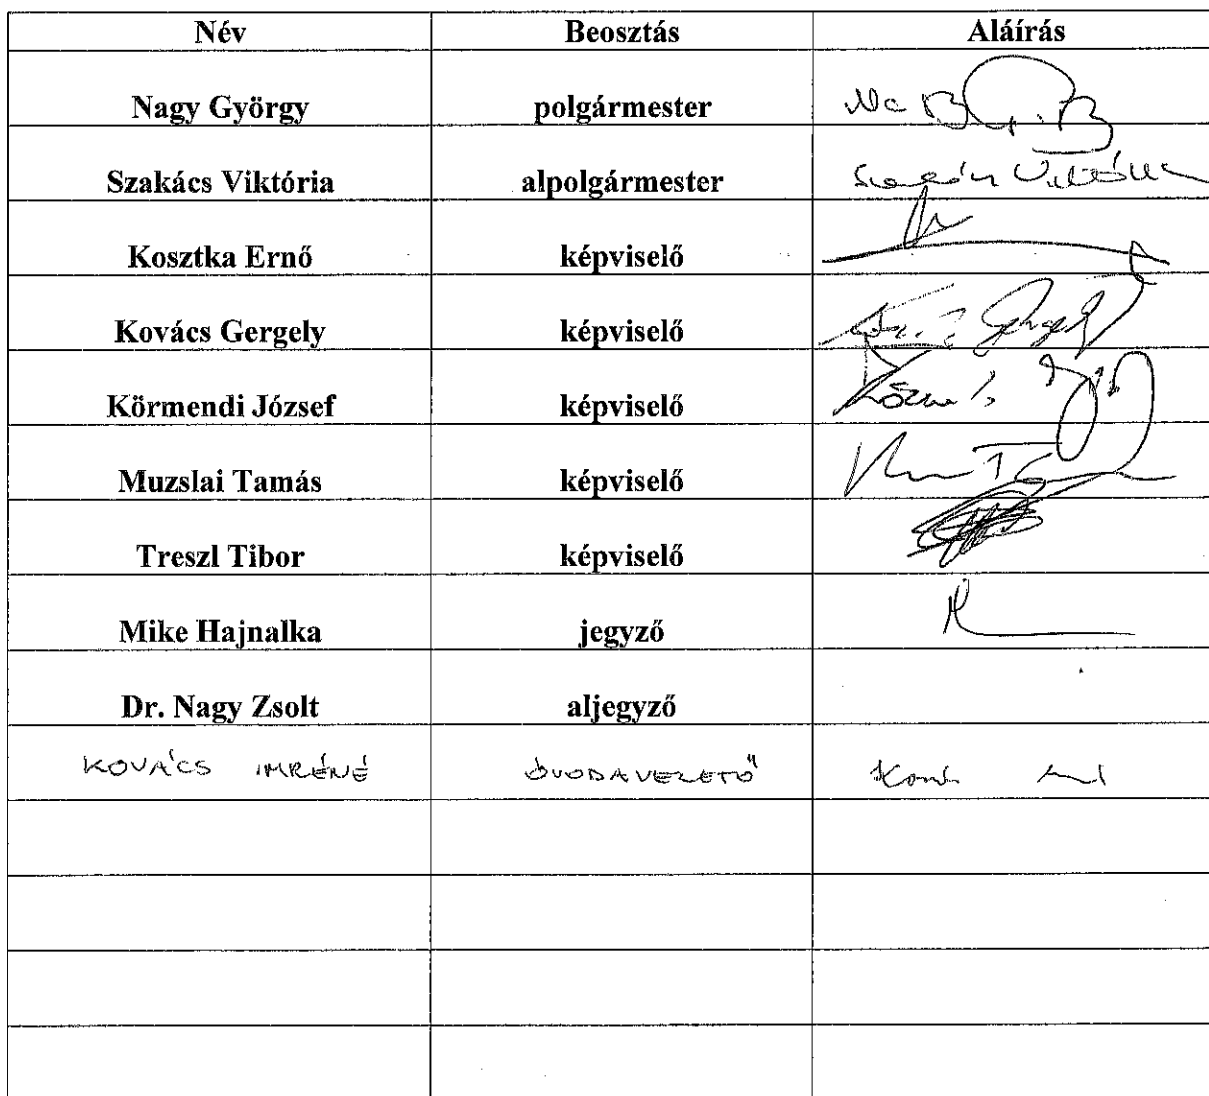 Név Beosztás Aláírás
Nagy György polgármester
Szakács Viktória alpolgármester
Kosztka Ernő képviselő
Kovács Gergely képviselő
Körmendi József képviselő
Muzslai Tamás képviselő
Treszl Tibor képviselő
Mike Hajnalka jegyző
Dr. Nagy Zsolt aljegyző
KOVÁCS IMRÉNÉ ÓVODAVEZETŐ